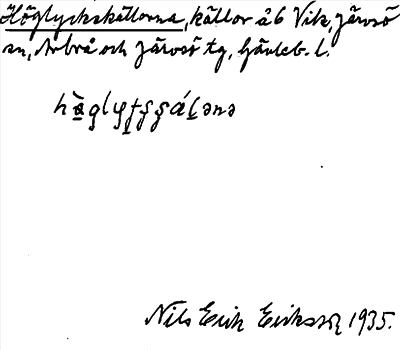 Höglyckskällorna, källor å 6 Vik, Järvsö
sn, Arbrå och Järvsö tg, Gävleb. l.
Nils Erik Eriksson 1935.